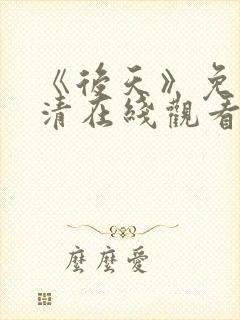 《後天》免
清在綫觀看
麽麽愛